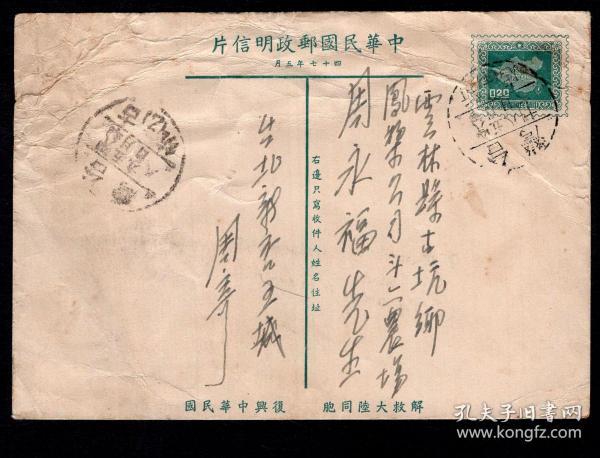 中華民國郵政明信片
四十七年五月
0.20
雲林縣古坑鄉
鳳梨公司斗六農場
周永福先生
右邊只寫收件人姓名住址
台北
周
解救大陸同胞 復興中華民國
孔夫子旧书网
www.kongfz.com